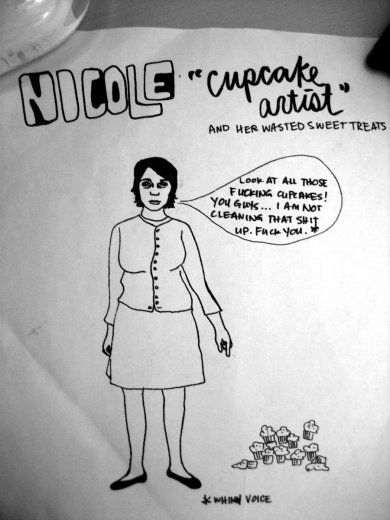 NICOLE "cupcake
artist"
AND HER WASTED SWEET TREATS
LOOK AT ALL THOSE
FUCKING CUPCAKES!
YOU GUYS... I AM NOT
CLEANING THAT SHIT
UP. FUCK YOU.*
* WHINY VOICE